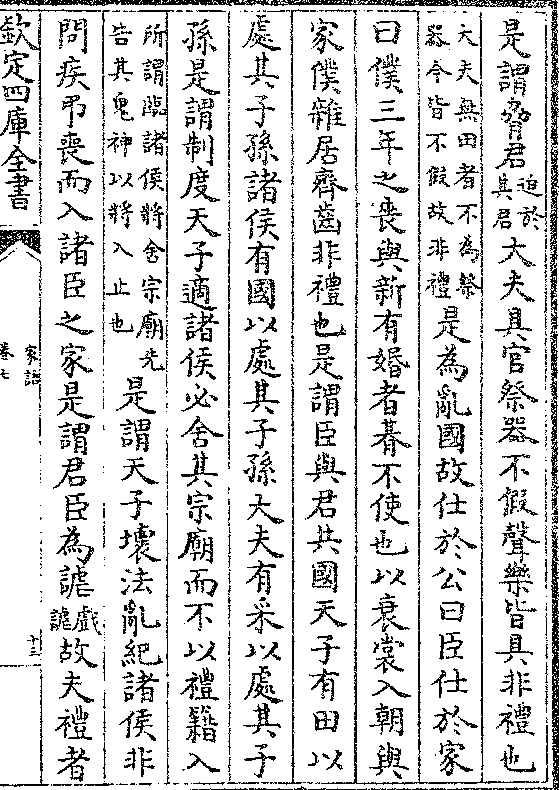 是謂脅君迫於其君大夫具官祭器不假聲樂皆具非禮也
大夫無田者不為祭器今皆不假故非禮是為亂國故仕於公曰臣仕於家
曰僕三年之喪與新有婚者朞不使也以衰裳入朝與
家僕雜居齊齒非禮也是謂臣與君共國天子有田以
處其子孫諸侯有國以處其子孫大夫有采以處其子
孫是謂制度天子適諸侯必舍其宗廟而不以禮籍入
所謂臨諸侯將舍宗廟先告其鬼神以將入止也是謂天子壞法亂紀諸侯非
問疾弔喪而入諸臣之家是謂君臣為謔戲謔故夫禮者
欽定四庫全書
家語
卷七
十三